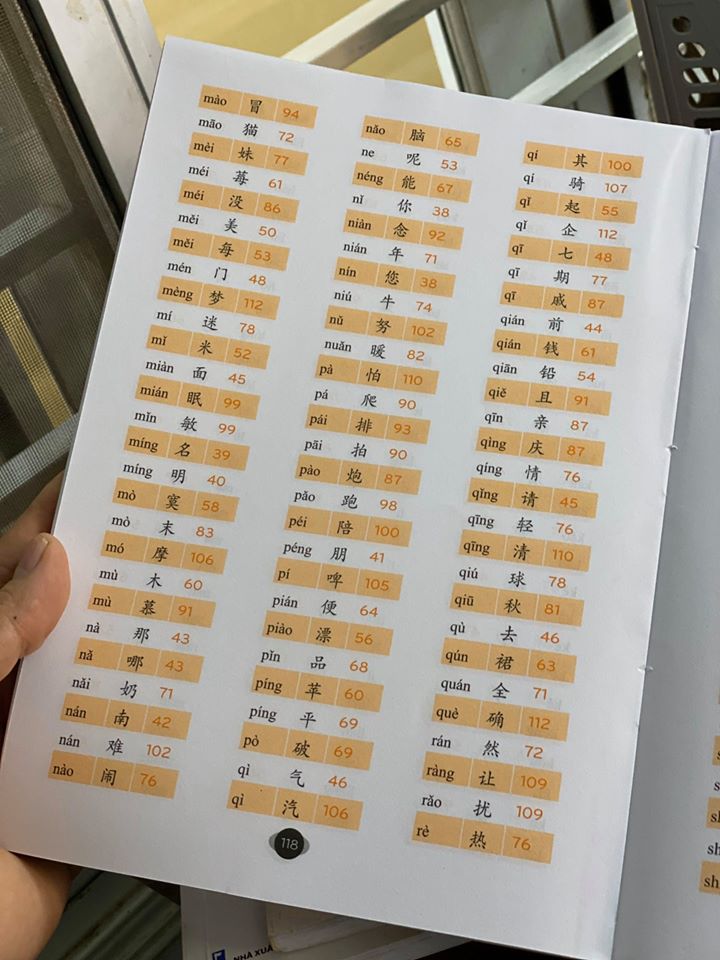 mào 冒 94
māo 猫 72
mèi 妹 77
méi 莓 61
méi 没 86
měi 美 50
měi 每 53
mén 门 48
mèng 梦 112
mí 迷 78
mǐ 米 52
miàn 面 45
mián 眠 99
mǐn 敏 99
míng 名 39
míng 明 40
mò 寞 58
mò 末 83
mó 摩 106
mù 木 60
mù 慕 91
nà 那 43
nǎ 哪 43
nǎi 奶 71
nán 南 42
nán 难 102
nào 闹 76
nǎo 脑 65
ne 呢 53
néng 能 67
nǐ 你 38
niàn 念 92
nián 年 71
nín 您 38
niú 牛 74
nǔ 努 102
nuǎn 暖 82
pà 怕 110
pá 爬 90
pái 排 93
pāi 拍 90
pào 炮 87
pǎo 跑 98
péi 陪 100
péng 朋 41
pí 啤 105
pián 便 64
piào 漂 56
pǐn 品 68
píng 苹 60
píng 平 69
pò 破 69
qì 气 46
qì 汽 106
qí 其 100
qí 骑 107
qǐ 起 55
qǐ 企 112
qī 七 48
qī 期 77
qī 戚 87
qián 前 44
qián 钱 61
qiān 铅 54
qiě 且 91
qīn 亲 87
qìng 庆 87
qíng 情 76
qǐng 请 45
qīng 轻 76
qīng 清 110
qiú 球 78
qiū 秋 81
qù 去 46
qún 裙 63
quán 全 71
què 确 112
rán 然 72
ràng 让 109
rǎo 扰 109
rè 热 76
118
NHÀ XUẤ
s
s
sh
sh
sh